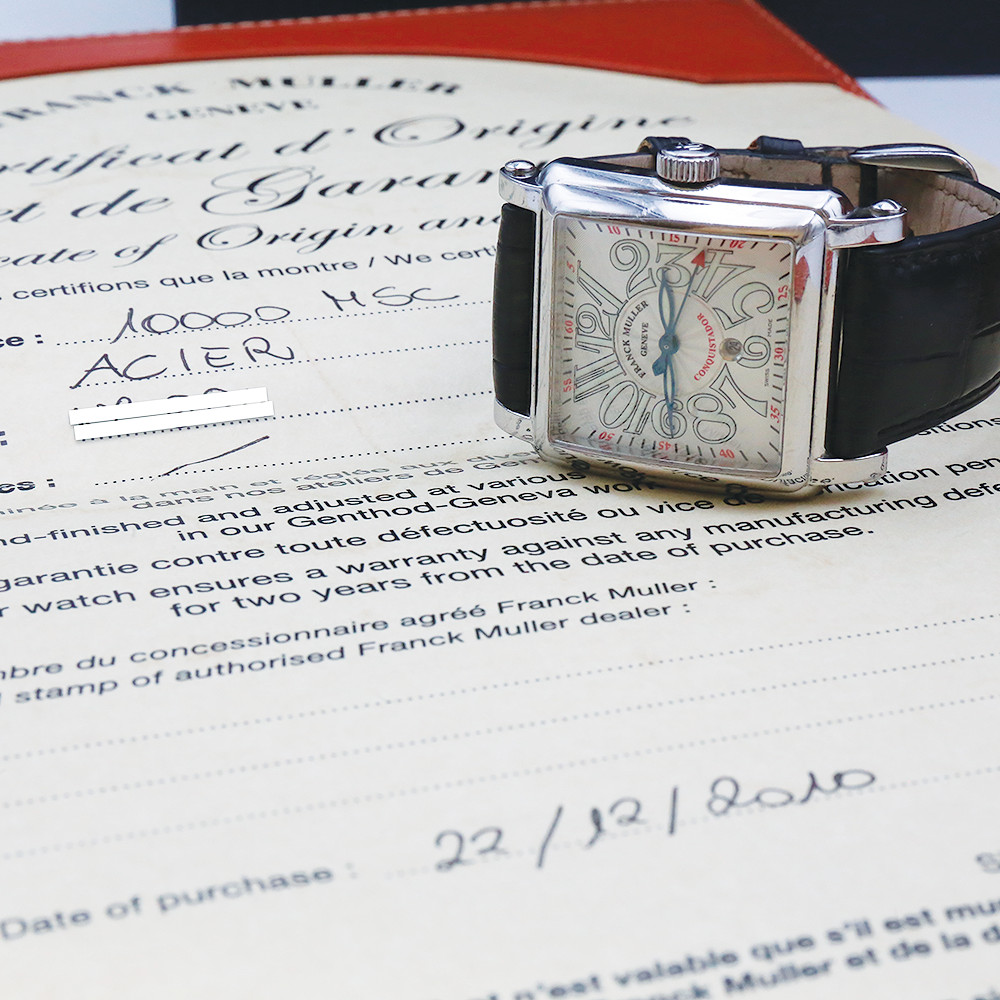 FRANCK MULLER
GENEVE
rtificat d'Origine
et de Garan
cate of Origin and
certifions que la montre / We cert
ce : 10000 MSC
ACIER
:
es :
inée à la main et réglée au
dans nos ateliers de Gen
sitions
nd-finished and adjusted at various
in our Genthod-Geneva wor
garantie contre toute défectuosité ou vice de fabrication pen
r watch ensures a warranty against any manufacturing defe
for two years from the date of purchase.
mbre du concessionnaire agréé Franck Muller :
l stamp of authorised Franck Muller dealer :
Date of purchase : 22/12/2010
S
t n'est valable que s'il est mu
nck Muller et de la d
FRANCK MULLER
GENEVE
CONQUISTADOR
5 10 15 20 25 30 35 40 45 50 55 60